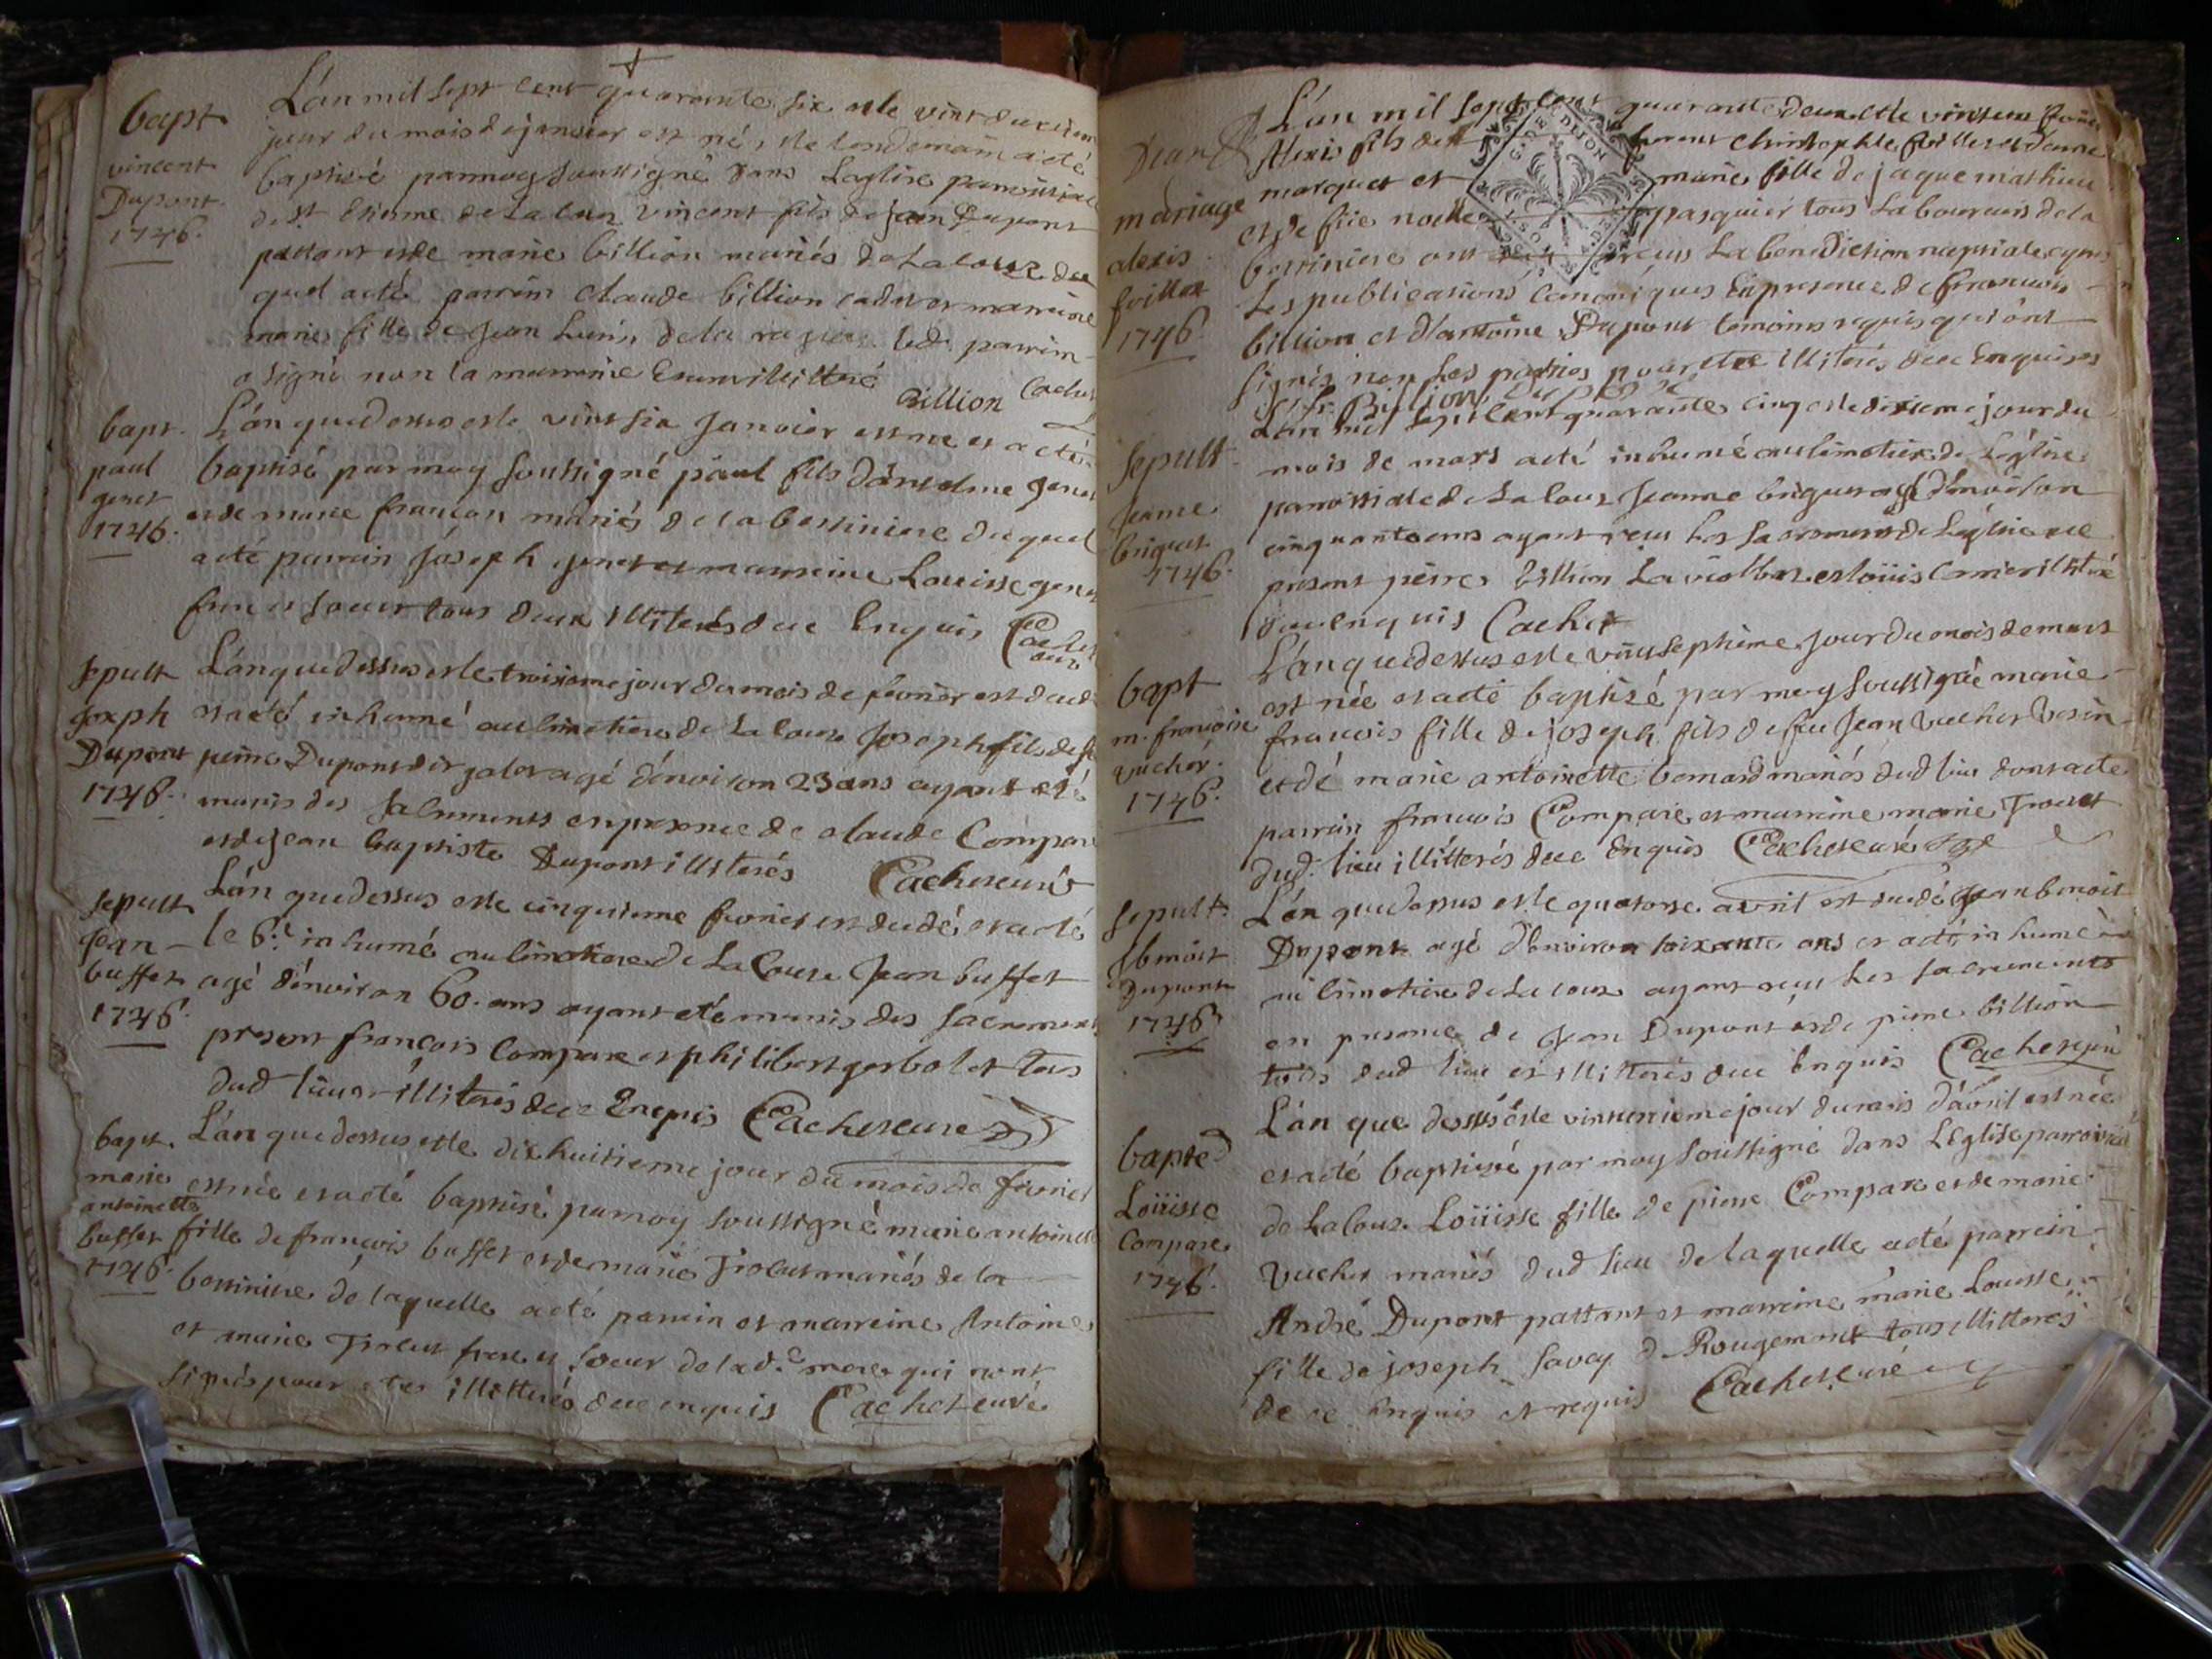 bapt
vincent
Dupont
1746.
L'an mil sept cent quarante six et le vint deuxiem
jour du mois de janvier est né, et le lendemain a eté
baptisé par moy soussigné dans Laglise parroissiale
de st Etienne de La Coux vincent fils de Jean Dupont
pattant et de marie billion mariés de La Coux du
quel a eté parrein claude billion cadet et marreine
marie fille de Jean de la led. parrein
a signé non la marreine
Billion Cachet
bapt.
paul
genet
1746.
L'an que dessus et le vint six Janvier est né et a eté
baptisé par moy soussigné paul fils d'anselme genet
et de marie françon mariés de la bessiniere duquel
a eté parrein Joseph genet et marreine Louisse genet
frere et soeur tous deux illiterés de ce Enquis Cachet
curé
sepult
joseph
Dupont
1746.
L'an que dessus et le troisieme jour du mois de fevrier est decedé
et a eté inhumé au cimetiere de La Coux Joseph fils de fe
pierre Dupont dit agé d'environ 23 ans ayant eté
munis des sacrments en presence de claude Compare
et de jean baptiste Dupont illiterés Cachet curé
sepult
Jean
buffet
1746.
L'an que dessus et le cinquieme fevrier est decedé et a eté
le 6.e inhumé au cimetiere de La Coux Jean buffet
agé d'environ 60. ans ayant eté munis des sacrement
present françois Compare et philibert gerbolet tous
dud lieu et illiterés de ce Enquis Cachet curé
bapt.
marie
antoinette
buffet
1746.
L'an que dessus et le dixhuitieme jour du mois de fevrier
est née et a eté baptisé par moy soussigné marie antoinette
fille de francois buffet et de marie Trolut mariés de la
bessiniere de laquelle a eté parrein et marreine Antoine
et marie Trolut frere et soeur de lad.e mere qui n'ont
signés pour etre illitterés de ce enquis Cachet curé
mariage
alexis
foillet
1746.
L'an mil sept cent quarante deux et le vint
Alexis fils de christophle foillet et d'anne
marquet et marie fille de jaque mathieu
et de feüe pasquier tous Laboureurs de la
bessiniere ont reçus La benediction nuptiale apres
Les publications Canoniques En presence de francois
billion et d'antoine Dupont temoins requis qui ont
signés non Les parties pour etre illiterés de ce Enquises
fr. Billion
sepult
Jeanne
briguet
1746.
L'an mil sept cent quarante cinq et le dixieme jour du
mois de mars a eté inhumé au cimetiere de Leglise
parroissiale de La Coux Jeanne briguet agé d'environ
cinquante ans ayant reçu Les sacrements de Leglise
present pierre billion et loüis illitteré
de ce enquis Cachet
bapt
m. francoise
vucher.
1746.
L'an que dessus et le vint septieme jour du mois de mars
est née et a eté baptisé par moy soussigné marie
francois fille de joseph fils de feu Jean Vucher
et de marie antoinette bernard mariés dud lieu dont a eté
parrein francois Compare et marreine marie Trolut
dud. lieu illitterés de ce Enquis Cachet curé
sepult.
J benoit
Dupont
1746
L'an que dessus et le quatorse avril est decedé Jean benoit
Dupont agé d'environ soixante ans et a eté inhumé
au cimetiere de La Coux ayant reçu Les sacrements
en presence de Jean Dupont et de pierre billion
tous dud lieu et illitterés de ce Enquis Cachet curé
bapte
Loüisse
Compare
1746.
L'an que dessus et le jour du mois d'avril est née
et a eté baptisée par moy soussigné dans L'Eglise parroissial
de La Coux Loüisse fille de pierre Compare et de marie
Vucher mariés dud lieu de laquelle a eté parrein
André Dupont pattant et marreine marie Louisse
fille de joseph savey de Rougemont tous illitterés
de ce Enquis et requis Cachet curé